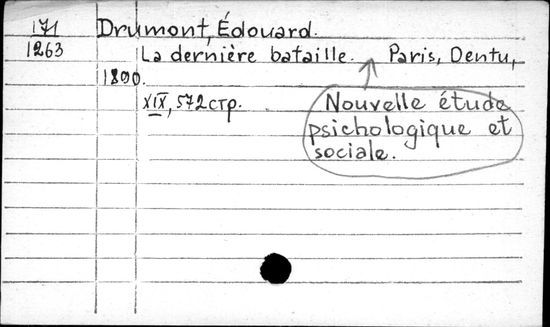 171
1263
Drumont, Édouard.
La dernière bataille. Paris, Dentu,
1890.
XIX, 572 стр.
Nouvelle étude
psichologique et
sociale.